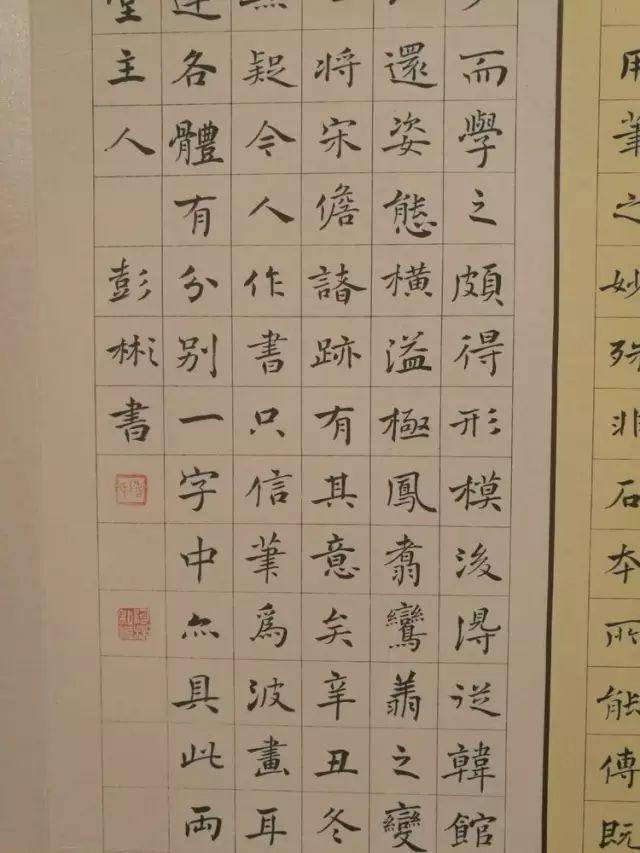 用筆之妙殊非石本所能傳既
而學之頗得形模後得從韓館
還姿態橫溢極鳳翥鸞翔之變
將宋儋諸跡有其意矣辛丑冬
無疑今人作書只信筆爲波畫耳
各體有分別一字中亦具此兩
堂主人 彭彬書